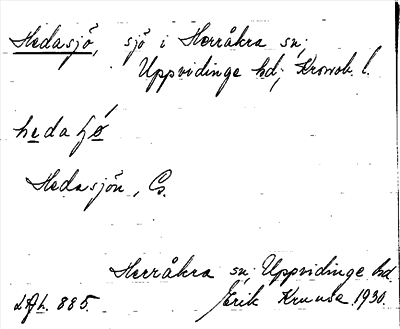 Hedasjö, sjö i Herråkra sn,
Uppvidinge hd, Kronob. l.
Hedasjön, Cs.
Herråkra sn, Uppvidinge hd
885. Erik Kruuse 1930.